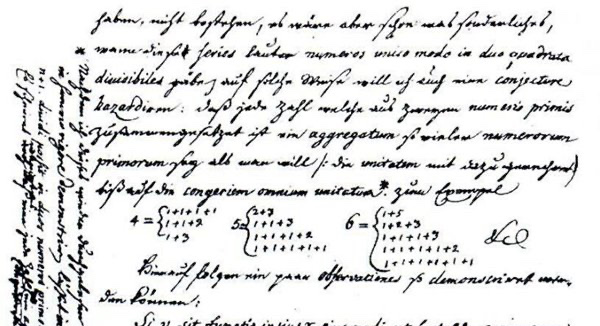 haben, nicht bestehen, es wäre aber schon was sonderliches,
wenn diese series lauter numeros unico modo in duo quadrata
divisibiles gäbe, auf solche Weise will ich auch eine conjecture
hazardiren: daß jede Zahl welche aus zweyen numeris primis
zusammengesetzet ist ein aggregatum so vieler numerorum
primorum sey als man will /: die unitatem mit dazu gerechnet /
biß auf die congeriem omnium unitatum *. zum Exempel
4 = { 1+1+1+1
1+1+2
1+3
5 = { 2+3
1+1+3
1+1+1+2
1+1+1+1+1
6 = { 1+5
1+2+3
1+1+1+3
1+1+1+1+2
1+1+1+1+1+1
&c
Hierauf folgen ein paar observationes so demonstriret wer-
den können:
Si v sit functio ipsius x
* Nachdem ich dieses wieder durchgelesen
in summo rigore demonstriren lässet
n+1 dividi possit in duos numeros primos
Es scheinet